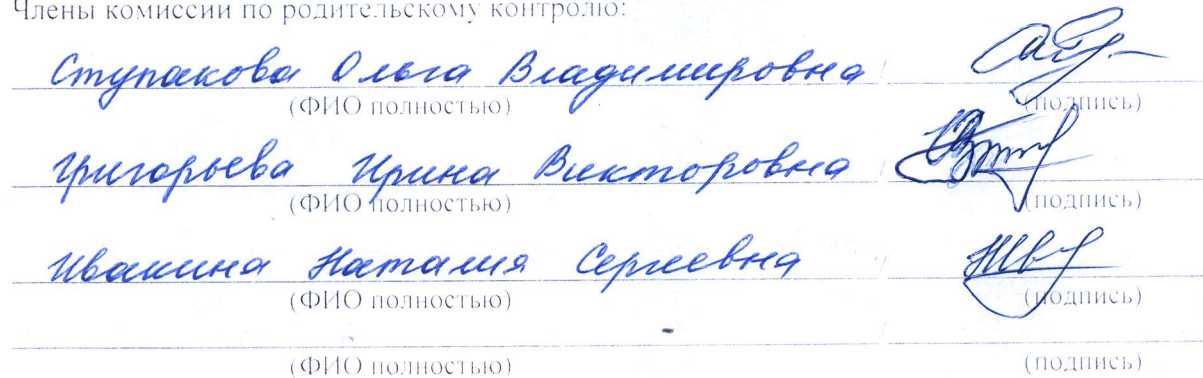 Члены комиссии по родительскому контролю:
Ступакова Ольга Владимировна /
(ФИО полностью) (подпись)
Григорьева Ирина Викторовна /
(ФИО полностью) (подпись)
Ивакина Наталия Сергеевна /
(ФИО полностью) (подпись)
/
(ФИО полностью) (подпись)